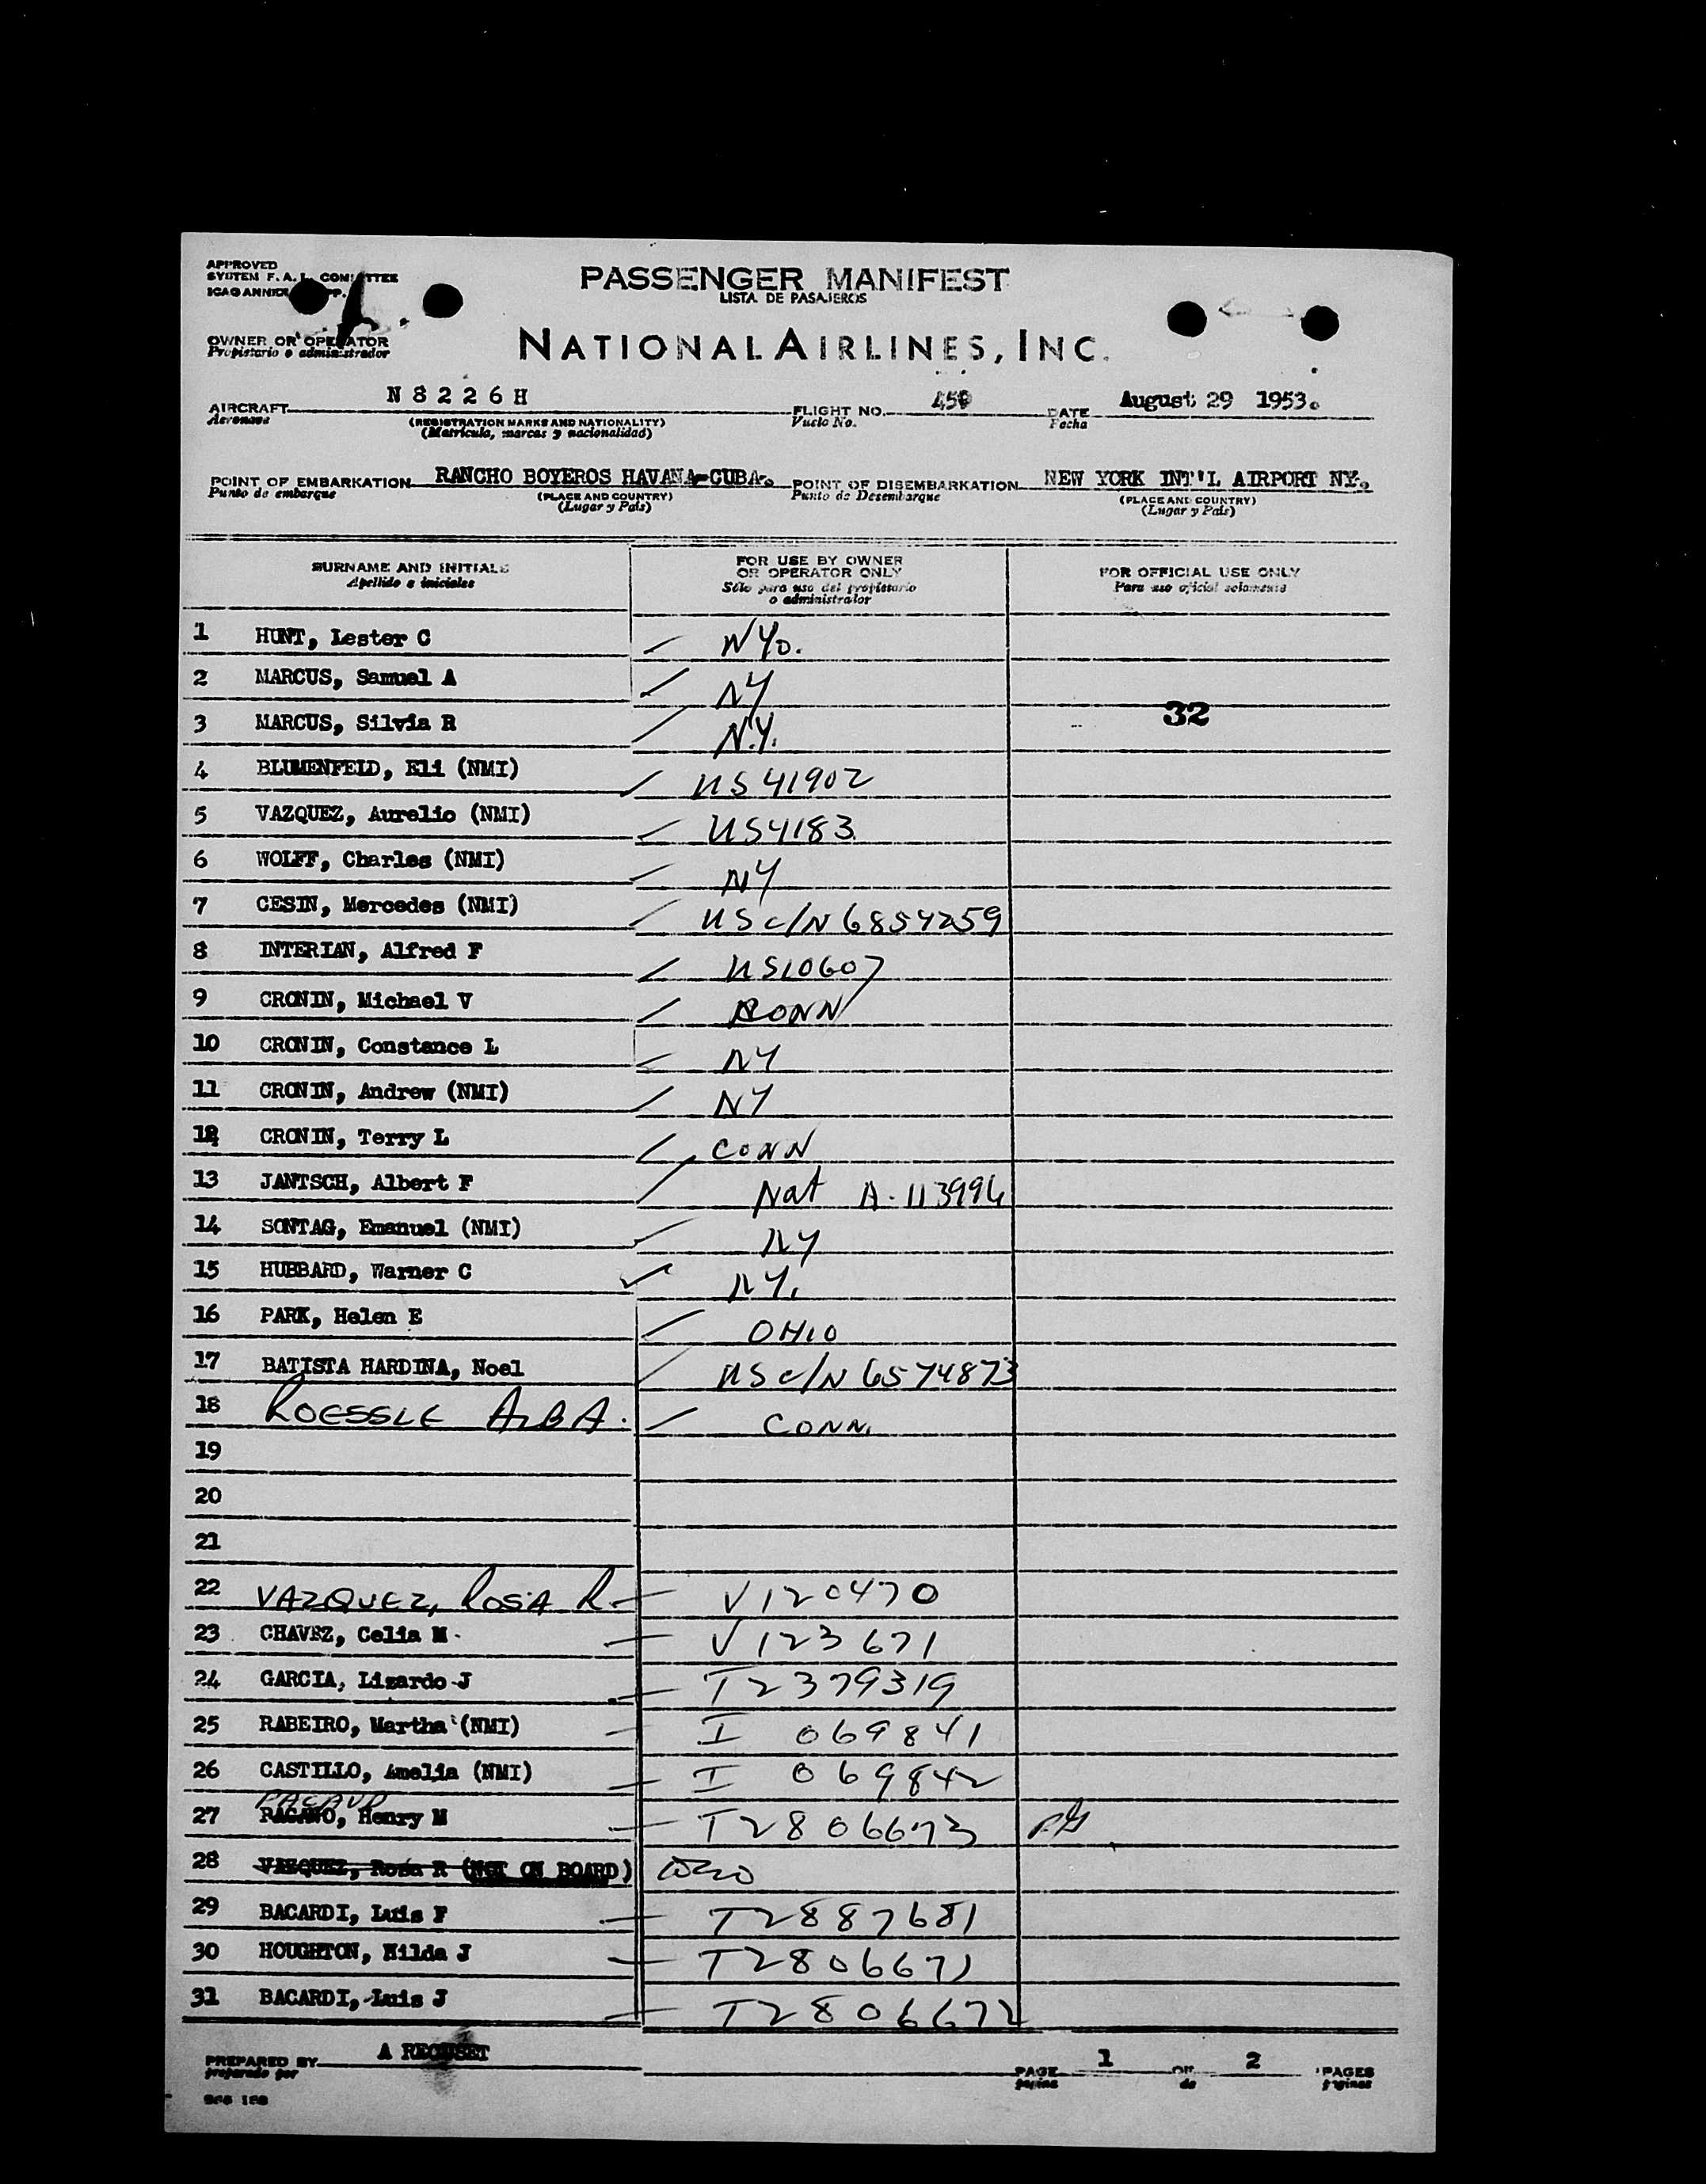 APPROVED
SYSTEM F. A. L. COMMITTEE
ICAO ANNEX
PASSENGER MANIFEST
LISTA DE PASAJEROS
OWNER OR OPERATOR
Propietario o administrador
NATIONAL AIRLINES, INC.
AIRCRAFT N 8 2 2 6 H FLIGHT NO. DATE August 29 1953.
Aeronave (REGISTRATION MARKS AND NATIONALITY) Vuelo No. Fecha
(Matrícula, marcas y nacionalidad)
POINT OF EMBARKATION RANCHO BOYEROS HAVANA-CUBA. POINT OF DISEMBARKATION NEW YORK INT'L AIRPORT NY.
Punto de embarque (PLACE AND COUNTRY) Punto de Desembarque (PLACE AND COUNTRY)
(Lugar y País) (Lugar y País)
SURNAME AND INITIALS FOR USE BY OWNER OR OPERATOR ONLY FOR OFFICIAL USE ONLY
Apellido e iniciales Sólo para uso del propietario o administrador Para uso oficial solamente
1 HUNT, Lester C WYo.
2 MARCUS, Samuel A NY
32
3 MARCUS, Silvia R N.Y.
4 BLUMENFELD, Eli (NMI) US 41902
5 VAZQUEZ, Aurelio (NMI) US4183
6 WOLFF, Charles (NMI) NY
7 CESIN, Mercedes (NMI) US C/N 6854259
8 INTERIAN, Alfred F US10607
9 CRONIN, Michael V CONN
10 CRONIN, Constance L NY
11 CRONIN, Andrew (NMI) NY
12 CRONIN, Terry L CONN
13 JANTSCH, Albert F Nat A-113994
14 SONTAG, Emanuel (NMI) NY
15 HUBBARD, Warner C NY.
16 PARK, Helen E OHIO
17 BATISTA HARDINA, Noel US C/N 6574873
18 ROESSLE ALBA. CONN.
19
20
21
22 VAZQUEZ, ROSA R. V120470
23 CHAVEZ, Celia M V 123671
24 GARCIA, Lizardo J T2379319
25 RABEIRO, Martha (NMI) I 069841
26 CASTILLO, Amelia (NMI) I 069842
PACAUD
27 PAGANO, Henry M T2806673
28 VAZQUEZ, Rosa R (NOT ON BOARD)
29 BACARDI, Luis F T2887681
30 HOUGHTON, Hilda J T2806671
31 BACARDI, Luis J T2806672
PREPARED BY A RECUSET PAGE 1 OF 2 PAGES
preparado por página de páginas